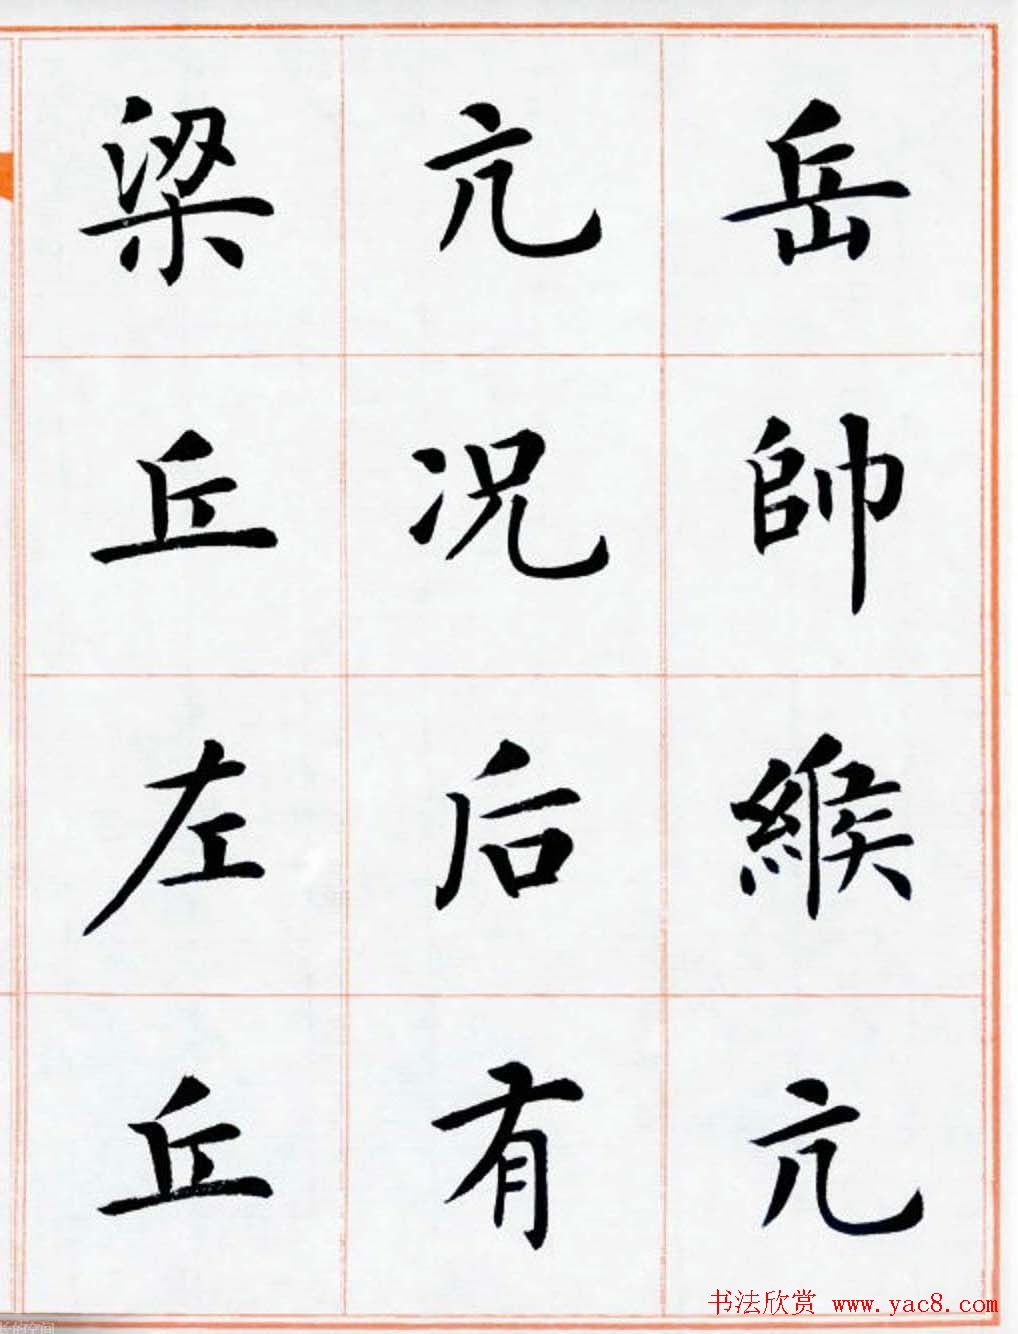 岳帥緱亢
亢况后有
梁丘左丘
书法欣赏 www.yac8.com